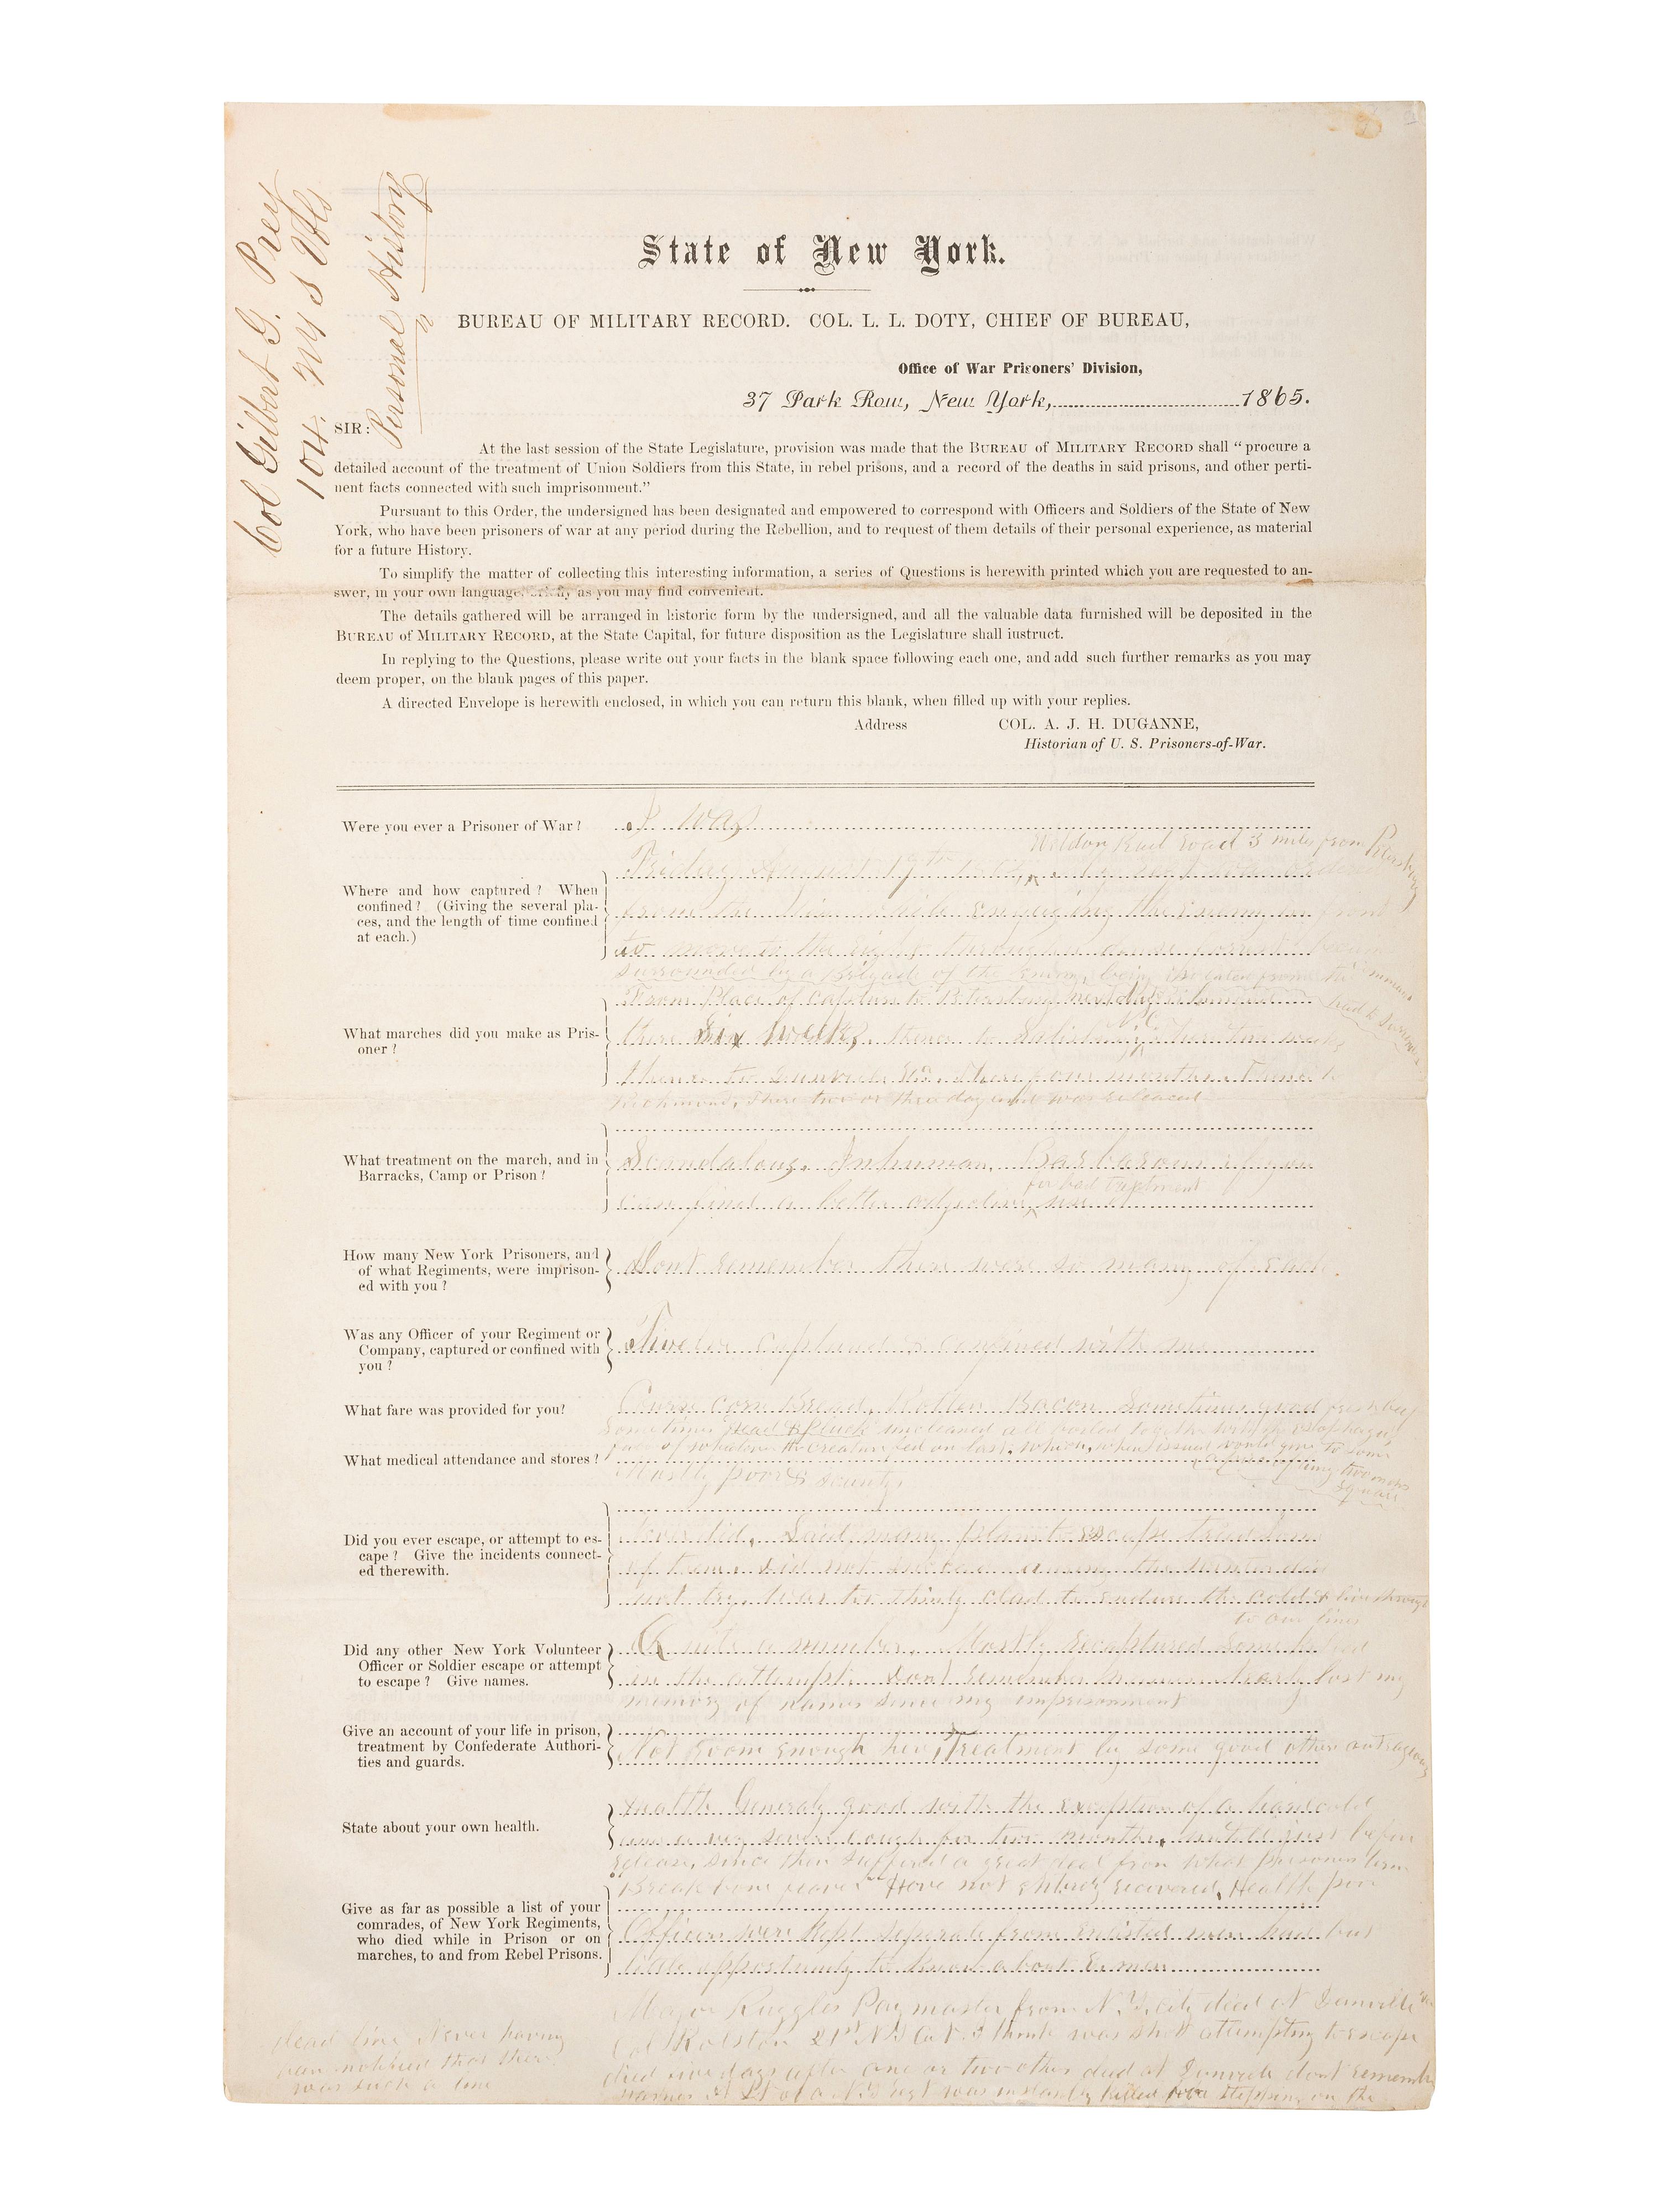 Col Gilbert G. Prey
104. N Y S Vols
Personal History
State of New York.
BUREAU OF MILITARY RECORD. COL. L. L. DOTY, CHIEF OF BUREAU,
Office of War Prisoners' Division,
37 Park Row, New York, 1865.
SIR:
At the last session of the State Legislature, provision was made that the BUREAU of MILITARY RECORD shall "procure a
detailed account of the treatment of Union Soldiers from this State, in rebel prisons, and a record of the deaths in said prisons, and other perti-
nent facts connected with such imprisonment."
Pursuant to this Order, the undersigned has been designated and empowered to correspond with Officers and Soldiers of the State of New
York, who have been prisoners of war at any period during the Rebellion, and to request of them details of their personal experience, as material
for a future History.
To simplify the matter of collecting this interesting information, a series of Questions is herewith printed which you are requested to an-
swer, in your own language, briefly as you may find convenient.
The details gathered will be arranged in historic form by the undersigned, and all the valuable data furnished will be deposited in the
BUREAU of MILITARY RECORD, at the State Capital, for future disposition as the Legislature shall instruct.
In replying to the Questions, please write out your facts in the blank space following each one, and add such further remarks as you may
deem proper, on the blank pages of this paper.
A directed Envelope is herewith enclosed, in which you can return this blank, when filled up with your replies.
Address COL. A. J. H. DUGANNE,
Historian of U. S. Prisoners-of-War.
Were you ever a Prisoner of War?
I was
Where and how captured? When
confined? (Giving the several pla-
ces, and the length of time confined
at each.)
Weldon Rail Road 3 miles from Petersburg
Friday August 19th 1864, ordered
from the line while engaging the enemy in front
to move to the right through a dense forrest
surrounded by a Brigade of the Enemy, being
What marches did you make as Pris-
oner?
From Place of Capture to Petersburg next day
there Six weeks, thence to Salisbury N.C. there two weeks
thence to Danville Va. there four months. Thence to
Richmond, there two or three days and was released
What treatment on the march, and in
Barracks, Camp or Prison?
Scandalous, Inhuman, Barbarous if you
can find a better adjective for bad treatment use it
How many New York Prisoners, and
of what Regiments, were imprison-
ed with you?
Dont remember there were so many of each
Was any Officer of your Regiment or
Company, captured or confined with
you?
Twelve captured & confined with me
What fare was provided for you?
Coarse corn Bread, Rotten Bacon Sometimes good fresh beef
Sometimes Head & pluck uncleaned all boiled together with the esophagus
full of whatever the creature fed on last, which, when issued would give to some
a piece of lung two inches
square
What medical attendance and stores?
Mostly poor & scanty
Did you ever escape, or attempt to es-
cape? Give the incidents connect-
ed therewith.
Never did. Laid many plans to escape
of them. Did not succeed during the winter did
not try. Was too thinly clad to endure the cold & live through
to our lines
Did any other New York Volunteer
Officer or Soldier escape or attempt
to escape? Give names.
Quite a number. Mostly recaptured
in the attempt. Dont remember names. Nearly lost my
memory of names since my imprisonment
Give an account of your life in prison,
treatment by Confederate Authori-
ties and guards.
Not room enough here, Treatment by some good others outrageous
State about your own health.
Health Generaly good with the exception of a hard cold
and a very severe cough for two months, untill just before
release, since then suffered a great deal from what prisoners term
"Break bone feaver" Have not entirely recovered, Health poor
Give as far as possible a list of your
comrades, of New York Regiments,
who died while in Prison or on
marches, to and from Rebel Prisons.
Officers were kept separate from enlisted men had but
little opportunity to know about E. men
Major Ruggles Paymaster from N.Y. city died at Danville Va
Col Rolston 21st N.Y. Cav. I think was shot attempting to escape
died five days after one or two others died at Danville dont remember
names A Lt of a N.Y. Regt was instantly killed for stepping on the
dead line Never having
been notified that there
was such a line